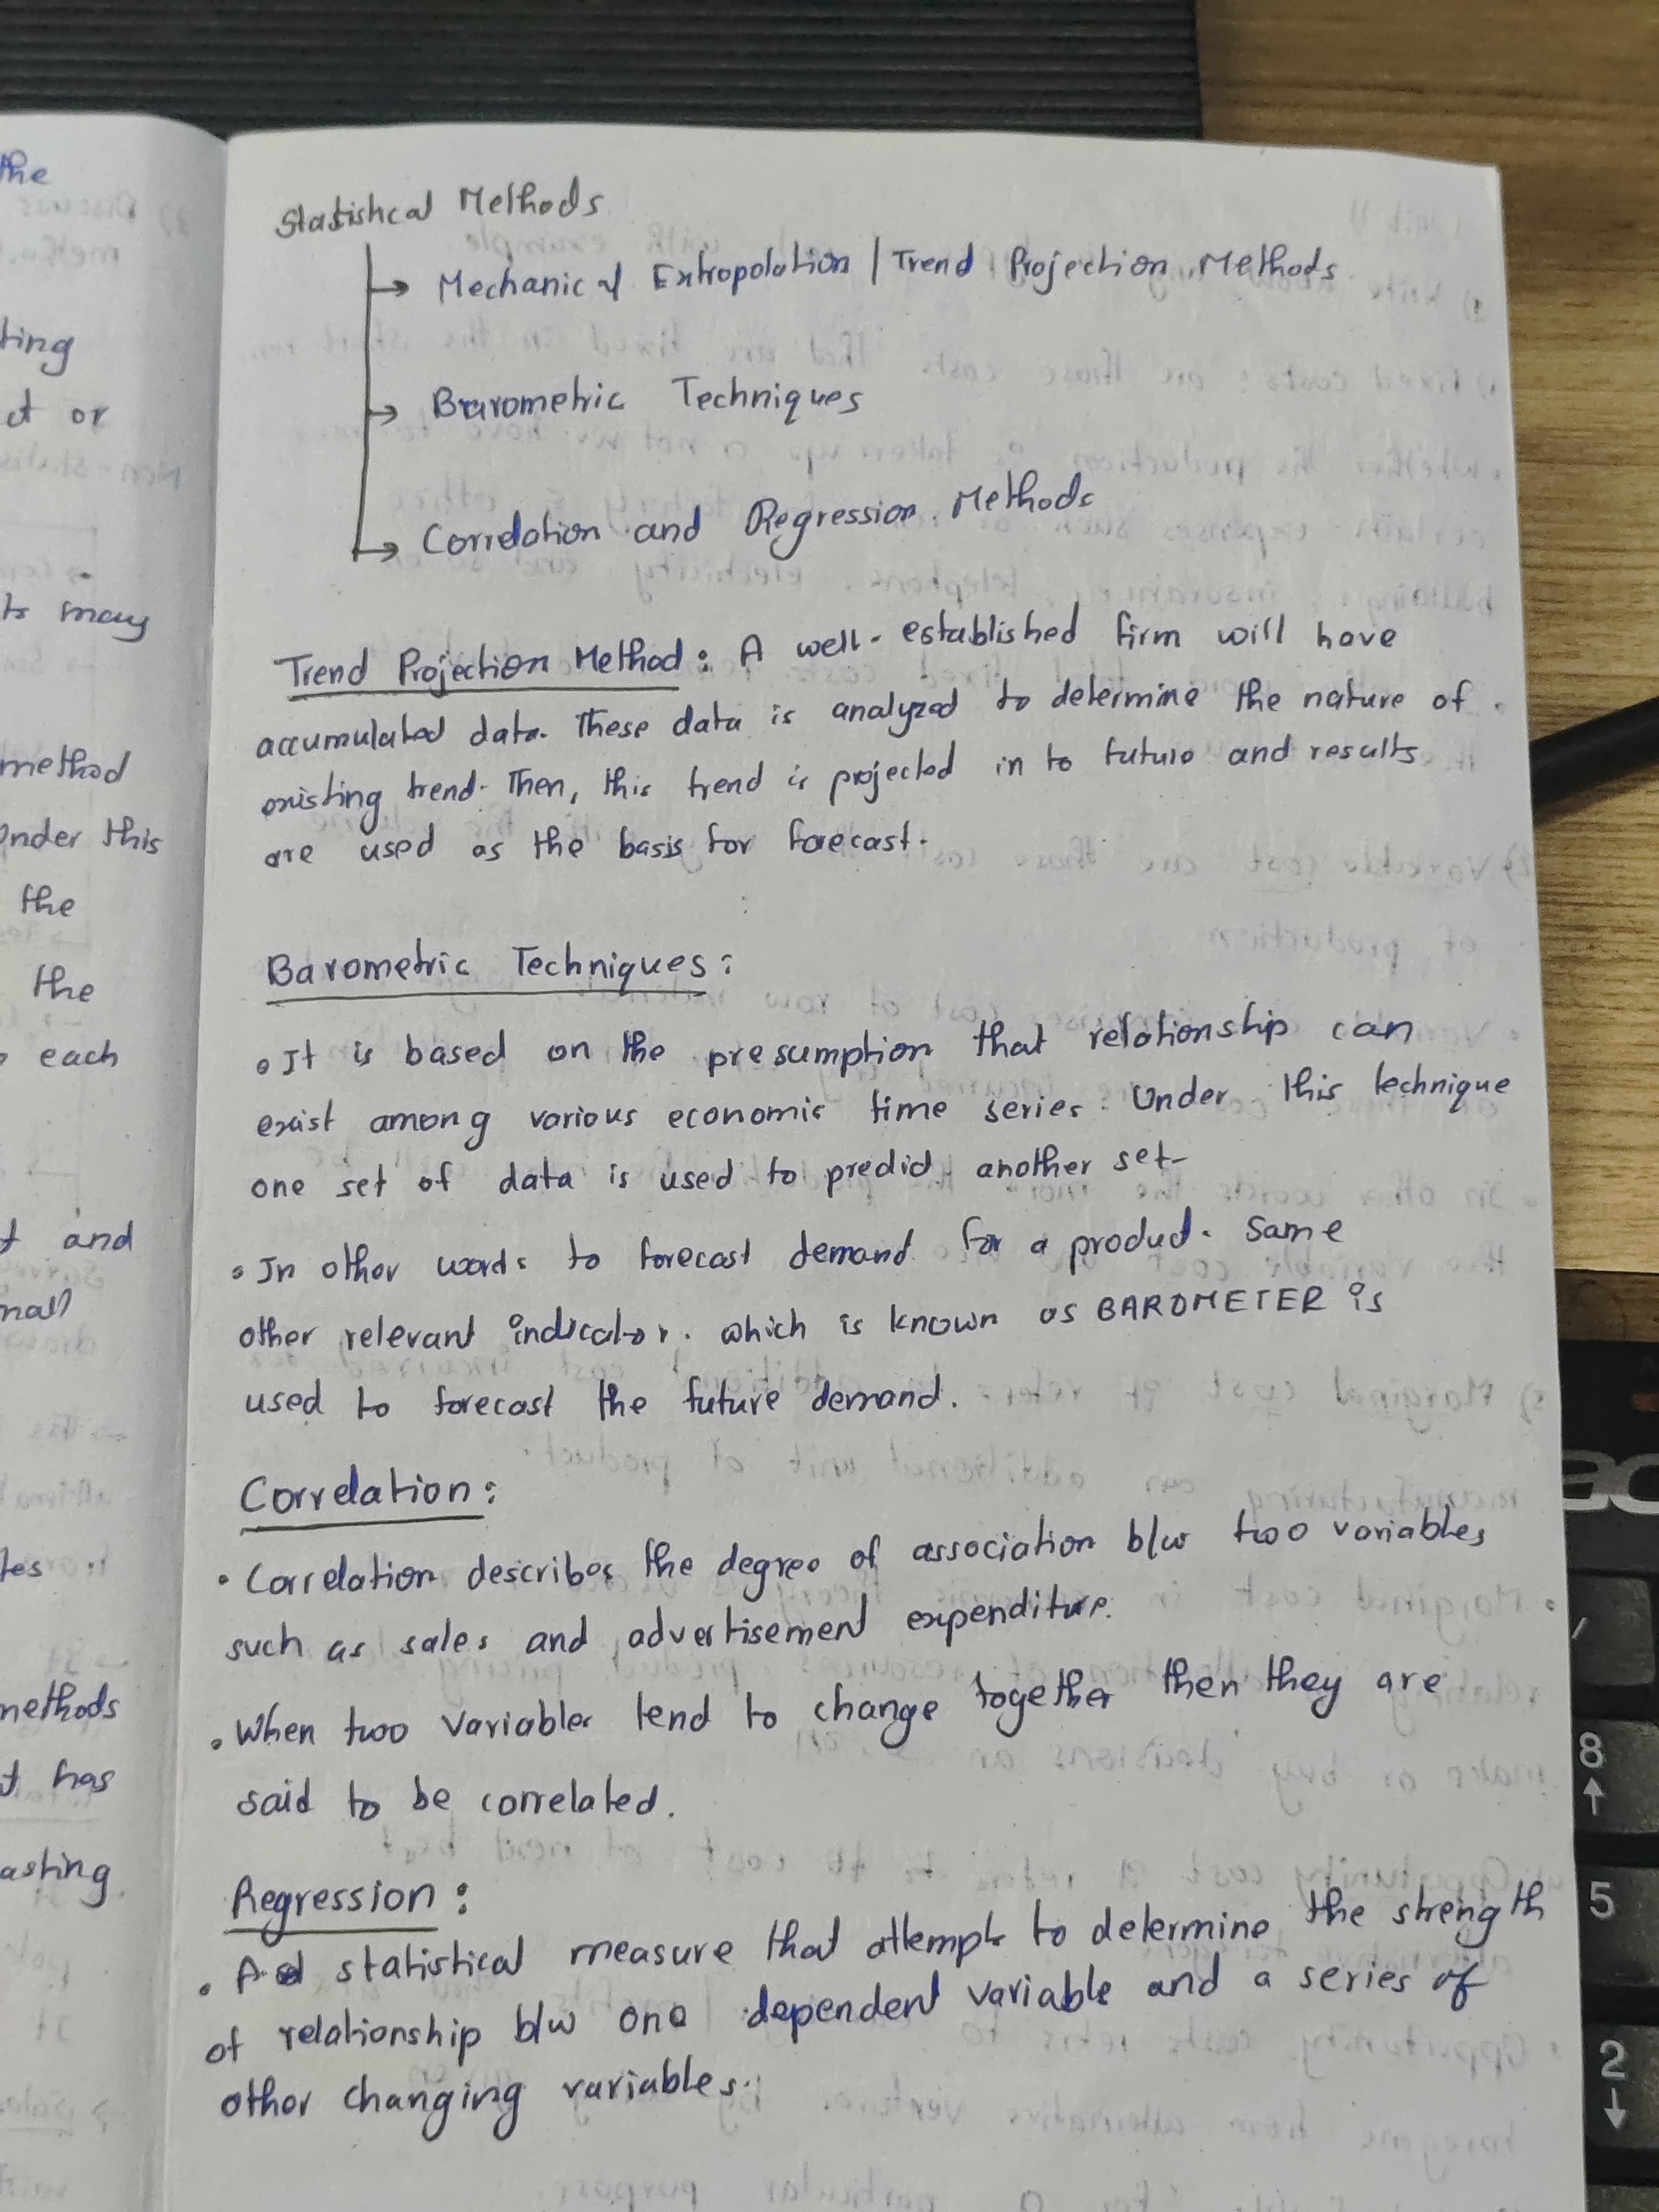 Statistical Methods
→ Mechanical Extropolation / Trend Projection Methods
→ Barometric Techniques
→ Correlation and Regression Methods
Trend Projection Method: A well-established firm will have
accumulated data. These data is analyzed to determine the nature of
existing trend. Then, this trend is projected in to future and results
are used as the basis for forecast.
Barometric Techniques:
• It is based on the presumption that relationship can
exist among various economic time series. Under this technique
one set of data is used to predict another set-
• In other words to forecast demand for a product. Same
other relevant indicator. which is known as BAROMETER is
used to forecast the future demand.
Correlation:
• Correlation describes the degree of association b/w two variables
such as sales and advertisement expenditure.
• When two variables tend to change together then they are
said to be correlated.
Regression:
• A statistical measure that attempts to determine the strength
of relationship b/w one dependent variable and a series of
other changing variables.
the
ting
ct or
many
method
Under this
the
the
each
and
methods
has
asting
ac
8
5
2